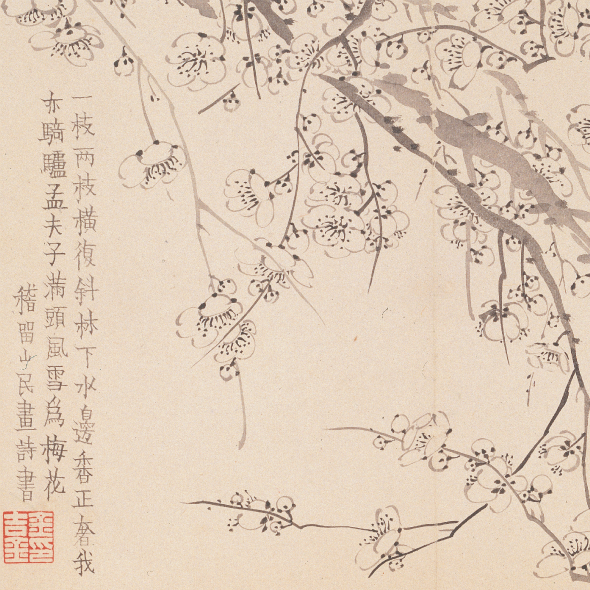 一枝兩枝橫復斜林下水邊香正奢我
亦騎驢孟夫子滿頭風雪為梅花
稽留山民畫詩書